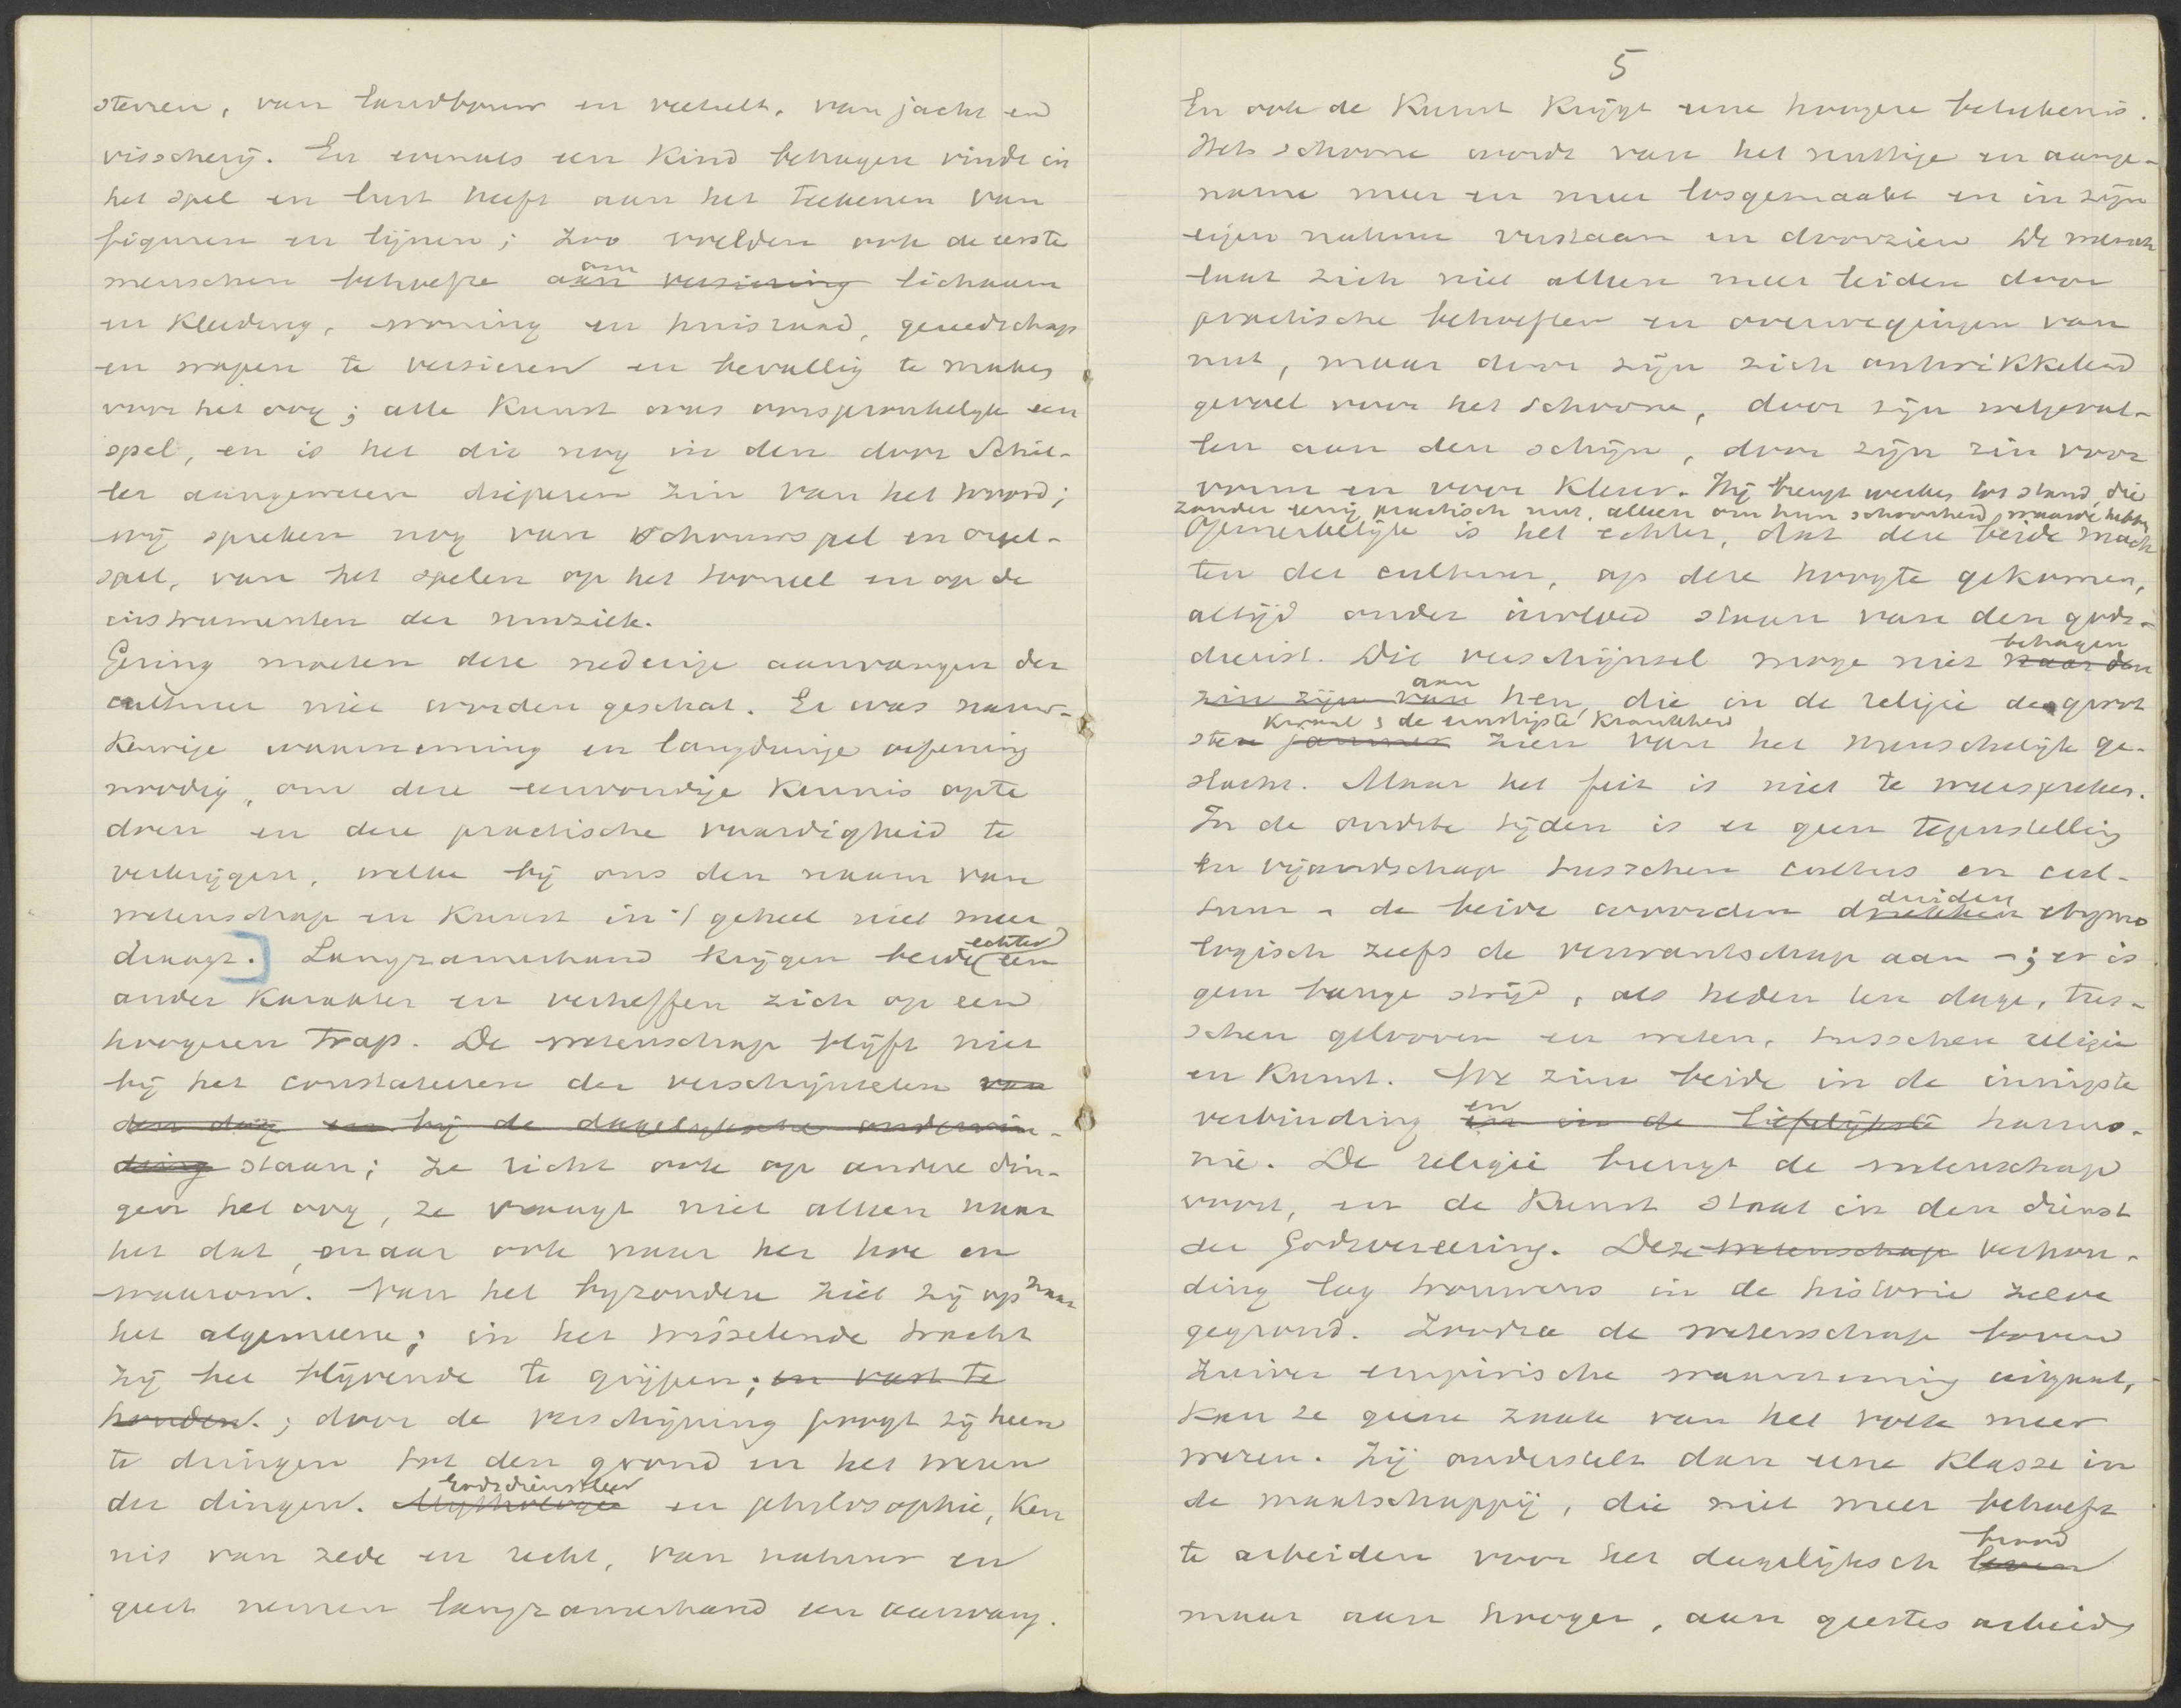 sterren, van landbouw en veeteelt, van jacht en
visscherij. En evenals een kind behagen vindt in
het spel en lust heeft aan het teekenen van
figuren en lijnen; zoo voelden ook de eerste
menschen behoefte aan versiering om lichaam
en kleeding, woning en huisraad, gereedschap
en wapen te versieren en bevallig te maken
voor het oog; alle kunst was oorspronkelijk een
spel, en is het die nog in den door Schil-
ler aangewezen dieperen zin van het woord;
wij spreken nog van schouwspel en orgel-
spel, van het spelen op het tooneel en op de
instrumenten der muziek.
Gering moeten deze nederige aanvangen der
cultuur niet worden geschat. Er was nauw-
keurige waarneming en langdurige oefening
noodig, om deze eenvoudige kennis op te
doen en deze practische vaardigheid te
verkrijgen, welke bij ons den naam van
wetenschap en kunst in 't geheel niet meer
draagt.] Langzamerhand krijgen beide echter een
ander karakter en verheffen zich op een
hoogeren trap. De wetenschap blijft niet
bij het constateeren der verschijnselen van
den dag en bij de dagelijksche ondervin-
ding staan; ze richt ook op andere din-
gen het oog, ze vraagt niet alleen naar
het dat, maar ook naar het hoe en
waarom. Van het byzondere ziet zij op naar
het algemeene; in het wisselende tracht
zij het blijvende te grijpen; en vast te
houden.; door de verschijning poogt zij heen
te dringen tot den grond en het wezen
der dingen. Mythologie Godsdienstleer en philosophie, ken
nis van zede en recht, van natuur en
geest nemen langzamerhand een aanvang.
5
En ook de Kunst krijgt eene hoogere beteekenis.
Het schoone wordt van het nuttige en aange-
name meer en meer losgemaakt en in zijn
eigen natuur verstaan en doorzien. De mensch
laat zich niet alleen meer leiden door
practische behoeften en overwegingen van
nut, maar door zijn zich ontwikkelend
gevoel voor het schoone, door zijn welgeval-
len aan den schijn, door zijn zin voor
vorm en voor kleur. Hij brengt werken tot stand, die
zonder eenig practisch nut, alleen om hun schoonheid, waarde hebben
Opmerkelijk is het echter, dat deze beide mach
ten der cultuur, op deze hoogte gekomen,
altijd onder invloed staan van den gods-
dienst. Dit verschijnsel moge niet naar den behagen
zin zijn van aan hen, die in de religie de groot
sten jammer kwaal, de ernstigste krankheid zien van het menschelijk ge-
slacht. Maar het feit is niet te weerspreken.
In de oudste tijden is er geen tegenstelling
en vijandschap tusschen cultus en cul-
tuur - de beide woorden drukken duiden etymo
logisch zelfs de verwantschap aan -; er is
geen bange strijd, als heden ten dage, tus-
schen gelooven en weten, tusschen religie
en kunst. We zien beide in de innigste
verbinding en in de liefelijkste en harmo-
nie. De religie brengt de wetenschap
voort, en de Kunst staat in den dienst
der Godsvereering. Deze wetenschap verhou-
ding lag trouwens in de historie zelve
gegrond. Zoodra de wetenschap boven
zuiver empirische waarneming uitgaat,
kan ze geene zaak van het volk meer
wezen. Zij onderstelt dan eene klasse in
de maatschappij, die niet meer behoeft
te arbeiden voor het dagelijksch leven brood
maar aan hooger, aan geestes arbeid